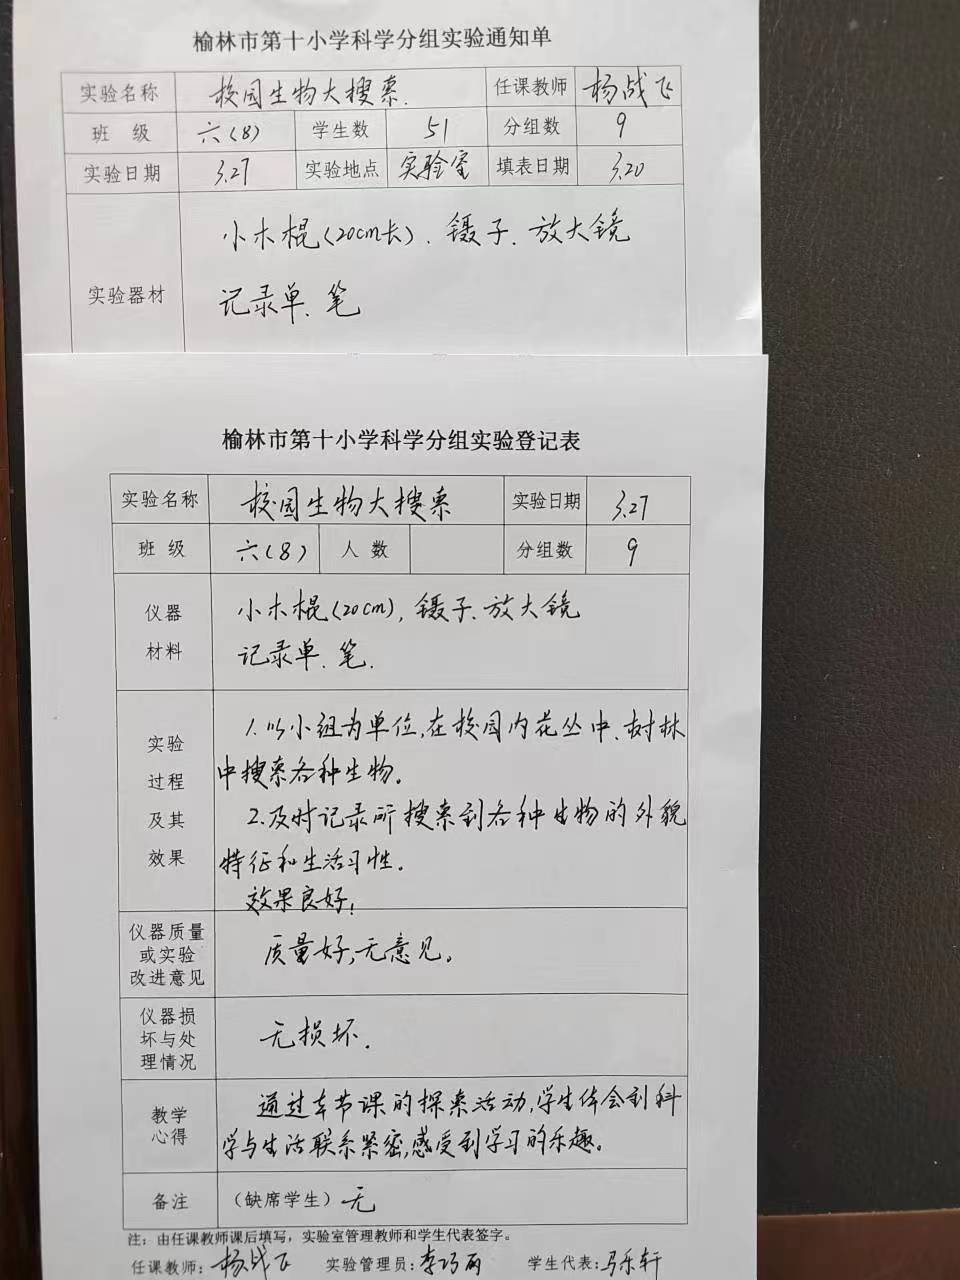 榆林市第十小学科学分组实验通知单
实验名称 校园生物大搜索. 任课教师 杨战飞
班 级 六(8) 学生数 51 分组数 9
实验日期 3.27 实验地点 实验室 填表日期 3.20
小木棍(20cm长). 镊子. 放大镜
实验器材 记录单. 笔
榆林市第十小学科学分组实验登记表
实验名称 校园生物大搜索 实验日期 3.27
班 级 六(8) 人 数 分组数 9
仪器 小木棍(20cm), 镊子. 放大镜
材料 记录单. 笔.
1.以小组为单位,在校园内花丛中、树林
实验
中搜索各种生物。
过程
2.及时记录所搜索到各种生物的外貌
及其
特征和生活习性.
效果
效果良好!
仪器质量
或实验 质量好,无意见。
改进意见
仪器损
坏与处 无损坏.
理情况
教学 通过本节课的探索活动,学生体会到科
心得 学与生活联系紧密,感受到学习的乐趣。
备注 (缺席学生) 无
注: 由任课教师课后填写, 实验室管理教师和学生代表签字。
任课教师: 杨战飞 实验管理员: 李巧丽 学生代表: 马乐轩